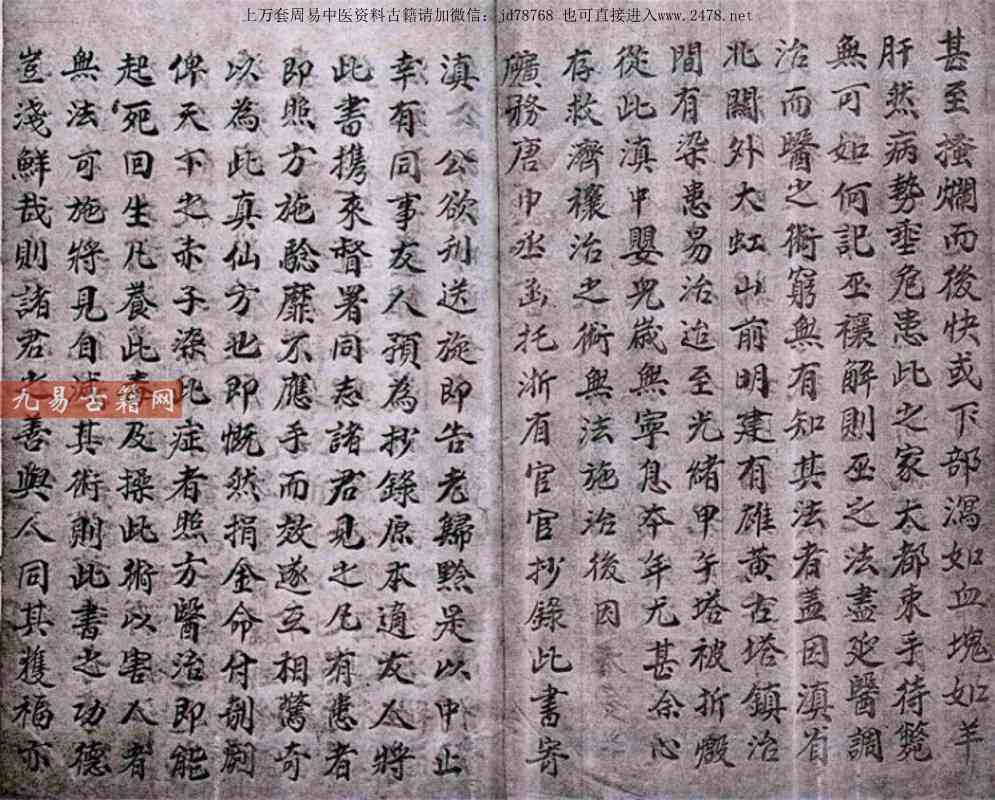 上万套周易中医资料古籍请加微信：jd78768 也可直接进入www.2478.net
甚至搔爛而後快或下部瀉如血塊如羊
肝然病勢垂危患此之家大都束手待斃
無可如何記巫禳解則巫之法盡延醫調
治而醫之術窮無有知其法者蓋因滇省
北關外大虹山前明建有碓黄古塔鎮治
間有染患易治迨至光緒甲午塔被折燬
從此滇中嬰兒歳無寧息夲年尤甚余心
存救濟禳治之術無法施治後因
礦務唐巾丞函托浙省官官抄錄此書寄
滇 公欲刋送旋即告老歸黔是以中止
幸有同事友人預為抄錄原本適友人將
此書携來督署同志諸君見之凡有患者
即照方施驗靡不應手而效遂立相驚奇
以為此真仙方也即慨然捐金命付剞劂
俾天下之赤子染此症者照方醫治即能
起死回生凡養此 及操此術以害人者
無法可施將見自 其術則此書之功德
豈淺鮮哉則諸君之善與人同其獲福亦
九易古籍网